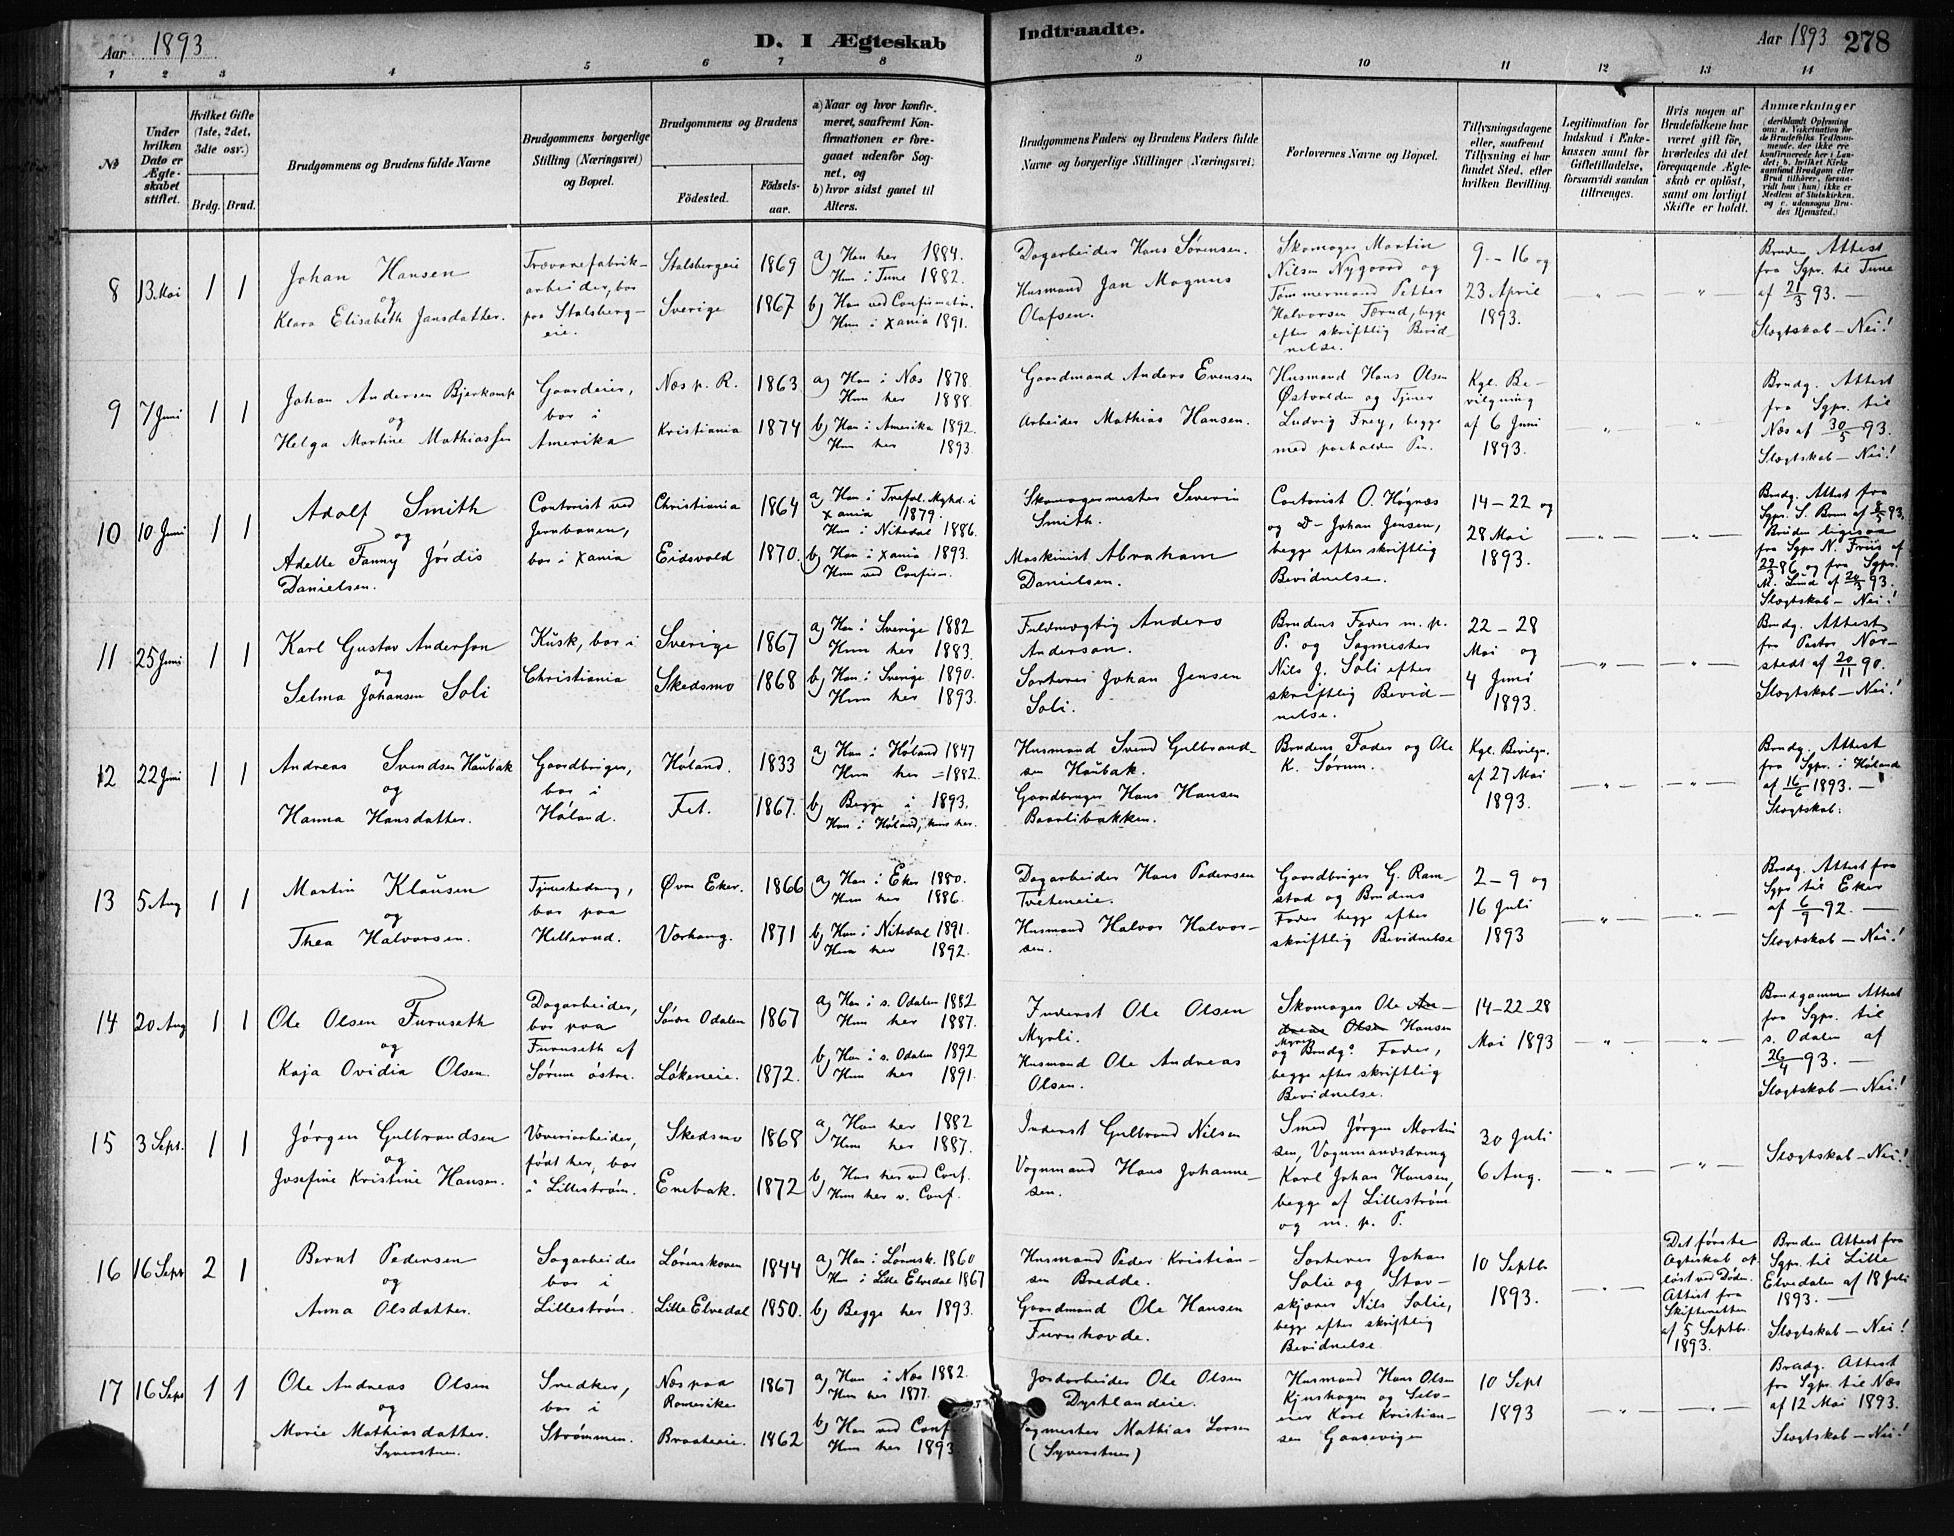 Aar 1893
D. I Ægteskab
Indtraadte.
Aar 1893
278
1 2 3 4 5 6 7 8 9 10 11 12 13 14
No
Under hvilken Dato er Ægteskabet stiftet.
Hvilket Gifte (1ste, 2det, 3die osv.)
Brdg. Brud.
Brudgommens og Brudens fulde Navne
Brudgommens borgerlige Stilling (Næringsvei) og Bopæl.
Brudgommens og Brudens
Fødested.
Fødselsaar.
a) Naar og hvor konfirmeret, saafremt Konfirmationen er foregaaet udenfor Sognet, og
b) hvor sidst gaaet til Alters.
Brudgommens Faders og Brudens Faders fulde Navne og borgerlige Stillinger (Næringsvei).
Forlovernes Navne og Bopæl.
Tillysningsdagene eller, saafremt Tillysning ei har fundet Sted, efter hvilken Bevilling.
Legitimation for Indskud i Enkekassen samt for Giftetilladelse, forsaavidt saadan tiltrænges.
Hvis nogen af Brudefolkene har været gift før, hvorledes da det foregaaende Ægteskab er opløst, samt om lovligt Skifte er holdt.
Anmærkninger
8
13. Mai
1 1
Johan Hansen
og
Klara Elisabeth Jansdatter.
Trævarefabrik-
arbeider, bor
paa Stalsberg-
eie.
Stalsbergeie 1869
Sverige 1867
a) Han her 1884.
Hun i Tune 1882.
b) Han ved Confirmation.
Hun i Xania 1891.
Dagarbeider Hans Sørensen.
Husmand Jan Magnus
Olafsen.
Skomager Martin
Nilsen Nygaard og
Tømmermand Petter
Halvorsen Tærud, begge
efter skriftlig Bevid-
nelse.
9. - 16 og
23 April
1893.
Bruden Attest
fra Sgpr. til Tune
af 21/3 93. —
Slægtskab - Nei!
9
7 Juni
1 1
Johan Andersen Bjerkamp
og
Helga Martine Mathiassen
Gaardeier,
bor i
Amerika
Næs p. R. 1863
Kristiania 1874
a) Han i Næs 1878.
Hun her 1888.
b) Han i Amerika 1892.
Hun her 1893.
Gaardmand Anders Evensen
Arbeider Mathias Hansen.
Husmand Hans Olsen
Østvolden og Tjener
Ludvig Frey, begge
med paaholden Pen.
Kgl. Be-
vilgning
af 6 Juni
1893.
Brudg. Attest
fra Sgpr. til
Næs af 30/5 93.
Slægtskab - Nei!
10
10 Juni
1 1
Adolf Smith
og
Adelle Fanny Jørdis
Danielsen.
Contorist ved
Jernbanen,
bor i Xania
Christiania 1864
Eidsvold 1870.
a) Han i Trefol. Mghd. i
Xania 1879.
Hun i Nitedal 1886.
b) Han i Xania 1893.
Hun ved Confirm.
Skomagermester Severin
Smith.
Maskinist Abraham
Danielsen.
Contorist O. Høgnæs
og D- Johan Jensen,
begge efter skriftlig
Bevidnelse.
14 - 22 og
28 Mai
1893.
Brudg. Attest fra
Sgpr. S. Brun af 8/5 93.
Bruden ligesaa
fra Sgpr N. Friis af
22/3 86 og fra Sgpr.
M. Lund af 20/3 93.
Slægtskab - Nei!
11
25 Juni
1 1
Karl Gustav Anderson
og
Selma Johansen Soli
Kusk, bor i
Christiania
Sverige 1867
Skedsmo 1868
a) Han i Sverige 1882
Hun her 1883.
b) Han i Sverige 1890.
Hun her 1893.
Fuldmægtig Anders
Anderson.
Sorterer Johan Jensen
Soli.
Brudens Fader m. p.
P. og Sagmester
Nils J. Soli efter
skriftlig Bevid-
nelse.
22 - 28
Mai og
4 Juni
1893.
Brudg. Attest
fra Pastor Nor-
stedt af 20/11 90.
Slægtskab - Nei!
12
22 Juni
1 1
Andreas Svendsen Haubak
og
Hanna Hansdatter.
Gaardbruger,
bor i
Høland.
Høland. 1833
Fet. 1867.
a) Han i Høland 1847
Hun her - 1882.
b) Begge i 1893.
Han i Høland, hun her.
Husmand Svend Gulbrand-
sen Haubak.
Gaardbruger Hans Hansen
Baarlibakken.
Brudens Fader og Ole
K. Sørum.
Kgl. Bevilgn.
af 27 Mai
1893.
Brudg. Attest
fra Sgpr. i Høland
af 16/6 1893. —
Slægtskab:
13
5 Aug
1 1
Martin Klausen
og
Thea Halvorsen.
Tjenestedreng,
bor paa
Hellerud.
Øvre Eker. 1866
Varhaug. 1871
a) Han i Eker 1880.
Hun her 1886.
b) Han i Nitedal 1891.
Hun her 1892.
Dagarbeider Hans Pedersen
Tveteneie.
Husmand Halvor Halvor-
sen.
Gaardbruger G. Ram-
stad og Brudens
Fader begge efter
skriftlig Bevidnelse
2 - 9 og
16 Juli
1893
Brudg. Attest fra
Sgpr til Eker
af 6/9 92. —
Slægtskab - Nei!
14
20 Aug
1 1
Ole Olsen Furuseth
og
Kaja Ovidia Olsen.
Dagarbeider,
bor paa
Furuseth af
Sørum østre.
Søndre Odalen 1867
Løkeneie. 1872.
a) Han i s. Odalen 1882
Hun her 1887.
b) Han i s. Odalen 1892
Hun her 1891.
Inderst Ole Olsen
Myrli.
Husmand Ole Andreas
Olsen.
Skomager Ole An-
dreas Olsen Hansen
og Brudg.s Fader,
begge efter skriftlig
Bevidnelse.
14-22-28
Mai 1893
Brudgommen Attest
fra Sgpr. til
s. Odalen af
26/4 93. —
Slægtskab - Nei!
15
3 Sept.
1 1
Jørgen Gulbrandsen
og
Josefine Kristine Hansen.
Væveriarbeider,
født her, bor
i Lillestrøm.
Skedsmo 1868
Enebak. 1872
a) Han her 1882
Hun her 1887.
b) Han her ved Conf.
Hun her v. Conf.
Inderst Gulbrand Nilsen
Vognmand Hans Johanne-
sen.
Smed Jørgen Martin
sen, Vognmandsdreng
Karl Johan Hansen,
begge af Lillestrøm
og m. p. P.
30 Juli
6 Aug.
Slægtskab - Nei!
16
16 Sept
2 1
Bernt Pedersen
og
Anna Olsdatter.
Sagarbeider
bor i
Lillestrøm.
Lørenskoven 1844
Lille Elvedal 1850.
a) Han i Lørensk. 1860
Hun i Lille Elvedal 1867
b) Begge her 1893.
Husmand Peder Kristian-
sen Bredde.
Gaardmand Ole Hansen
Furuhovde.
Sorterer Johan
Solie og Stav-
skjærer Nils Solie,
begge efter skriftlig
Bevidnelse
10 Septbr
1893.
Det første
Ægteskab op-
løst ved Døden.
Attest fra
Skifteretten
af 5 Septbr.
1893.
Bruden Attest fra
Sgpr. til Lille
Elvedalen af 18 Juli
1893. —
Slægtskab - Nei!
17
16 Sept
1 1
Ole Andreas Olsen
og
Marie Mathiasdatter.
Syverstuen.
Snedker,
bor i
Strømmen.
Næs paa
Romerike 1867
Braateeie. 1862
a) Han i Næs 1882.
Hun her 1877.
b) Han ved Conf
Hun her 1893
Jordarbeider Ole Olsen
Dystlandeie.
Sagmester Mathias Larsen
(Syverstuen)
Husmand Hans Olsen
Kjushagen og Selv-
eier Karl Kristian-
sen Gaasevigen
10 Sept
1893
Brudg. Attest
fra Sgpr. til Næs
af 12 Mai 1893.
Slægtskab - Nei!